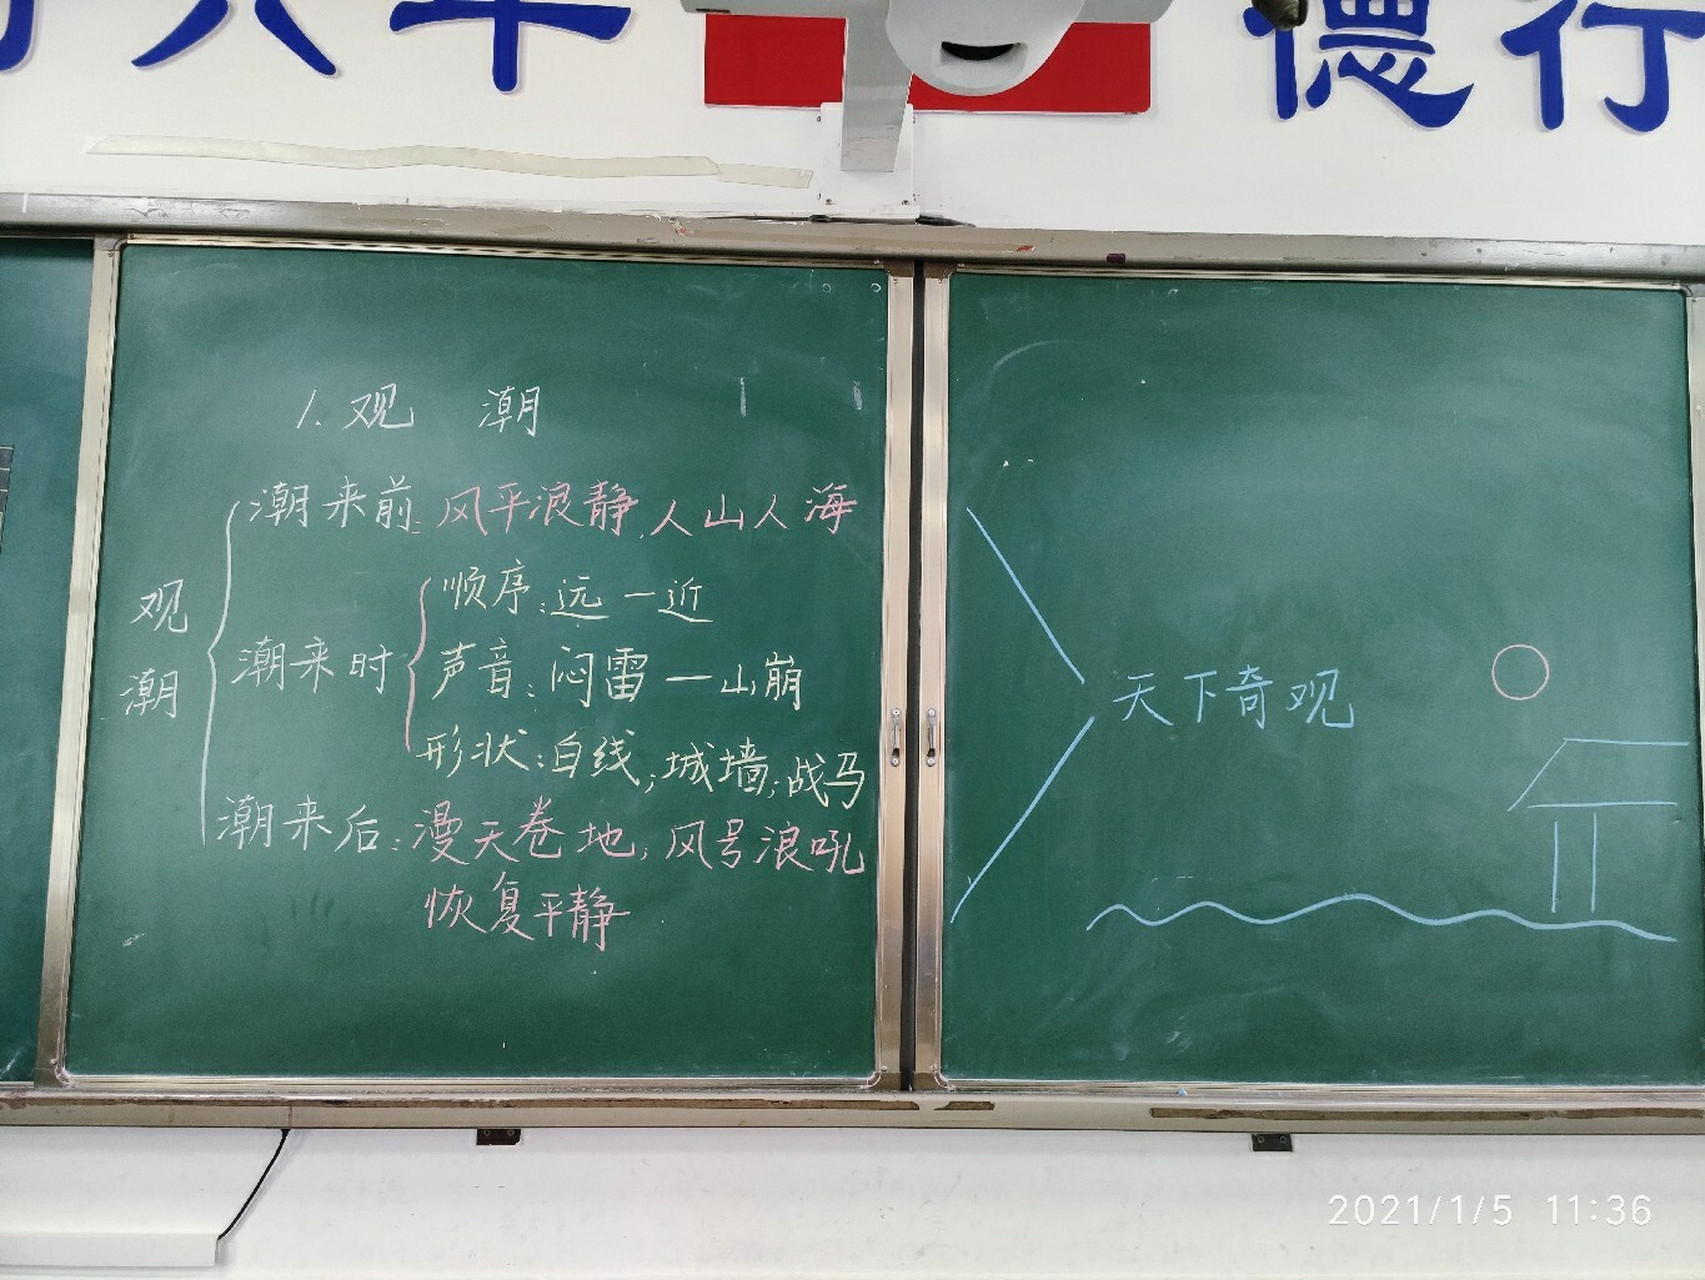 德行
1.观 潮
观潮
潮来前:风平浪静,人山人海
潮来时
顺序:远—近
声音:闷雷—山崩
形状:白线;城墙;战马
潮来后:漫天卷地;风号浪吼
恢复平静
天下奇观
2021/1/5 11:36